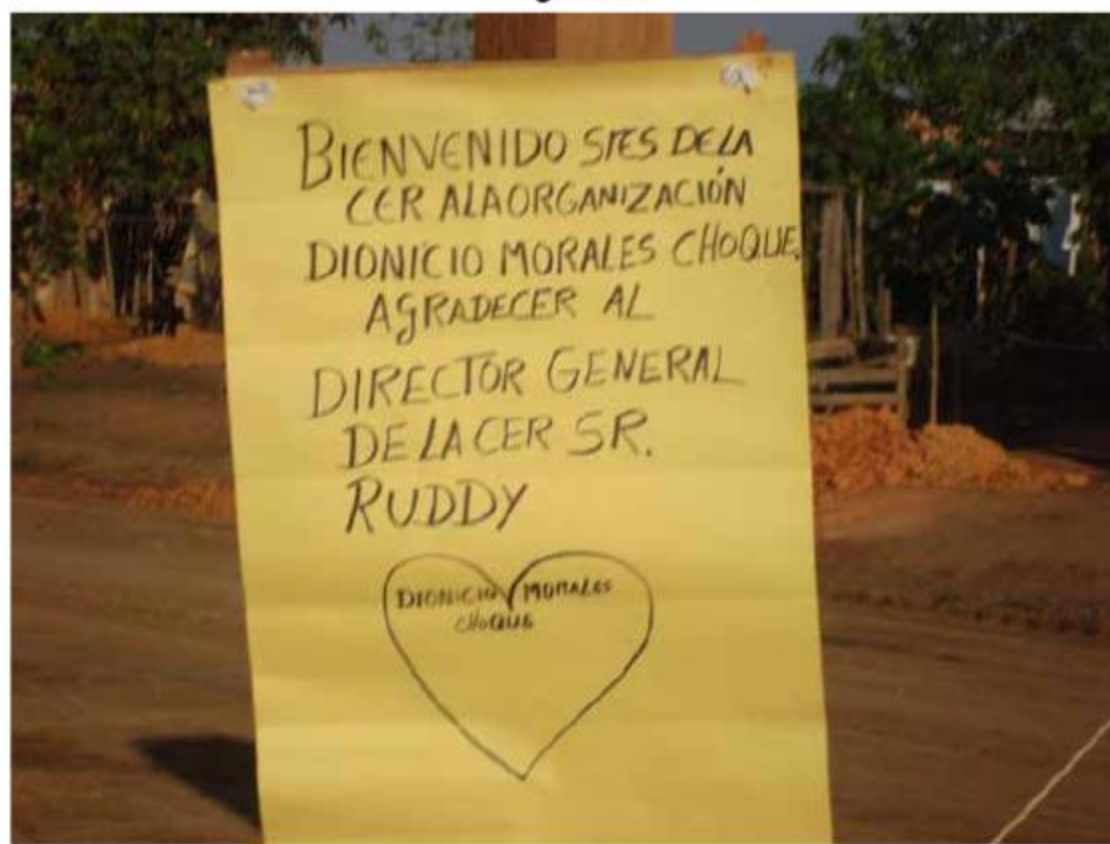 BIENVENIDO SRES DE LA
CER ALA ORGANIZACIÓN
DIONICIO MORALES CHOQUE.
AGRADECER AL
DIRECTOR GENERAL
DE LA CER SR.
RUDDY
DIONICIO MORALES
CHOQUE